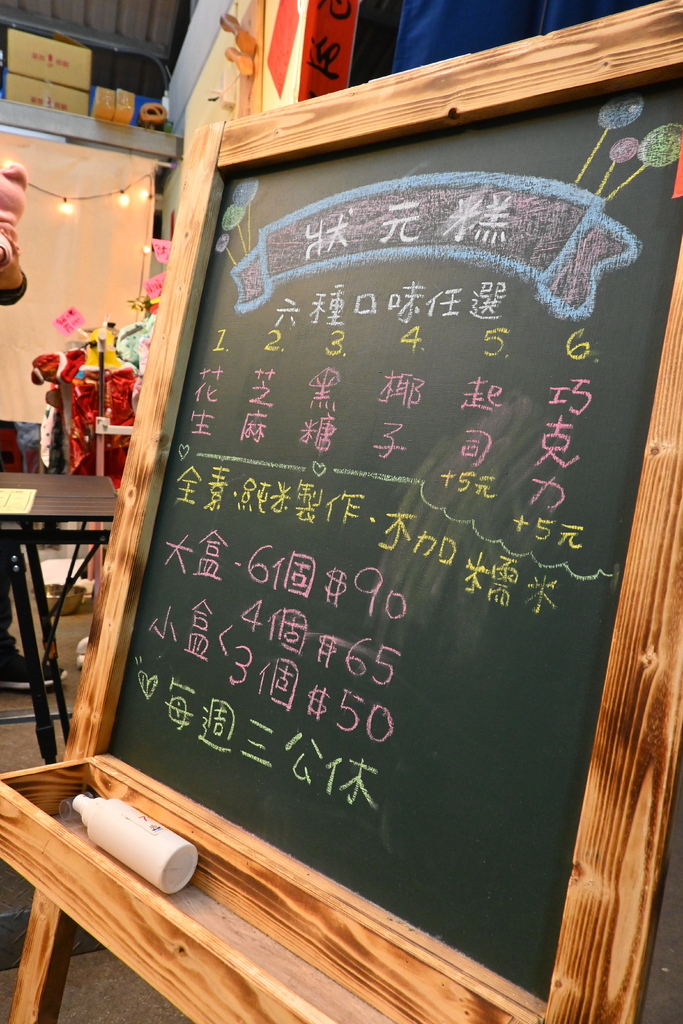 狀元糕
六種口味任選
1. 2. 3. 4. 5. 6.
花生 芝麻 黑糖 椰子 起司 巧克力
+5元 +5元
全素·純米製作·不加糯米
大盒-6個$90
小盒<4個$65
3個$50
每週三公休